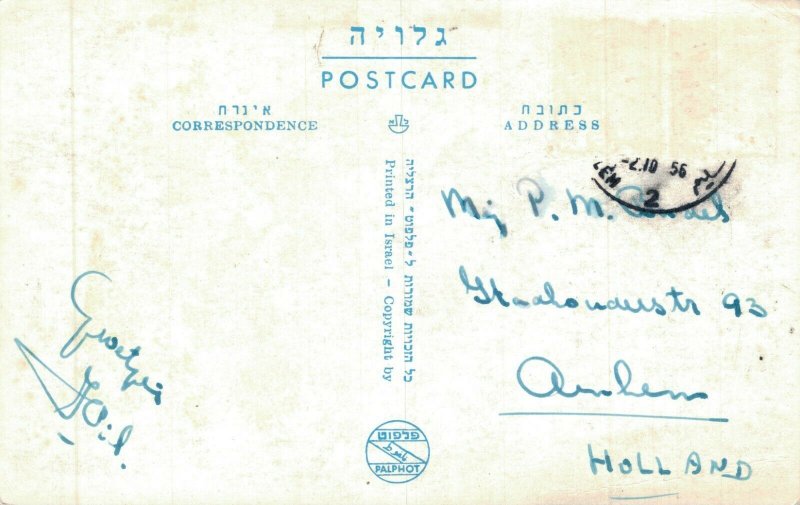 גלויה
POSTCARD
איגרת
CORRESPONDENCE
כתובת
ADDRESS
-2.10 56
2
Mej P. M.
93
Arnhem
HOLLAND
כל הזכויות שמורות ל„פלפוט” הרצליה
Printed in Israel – Copyright by
Groetjes
פלפוט
PALPHOT